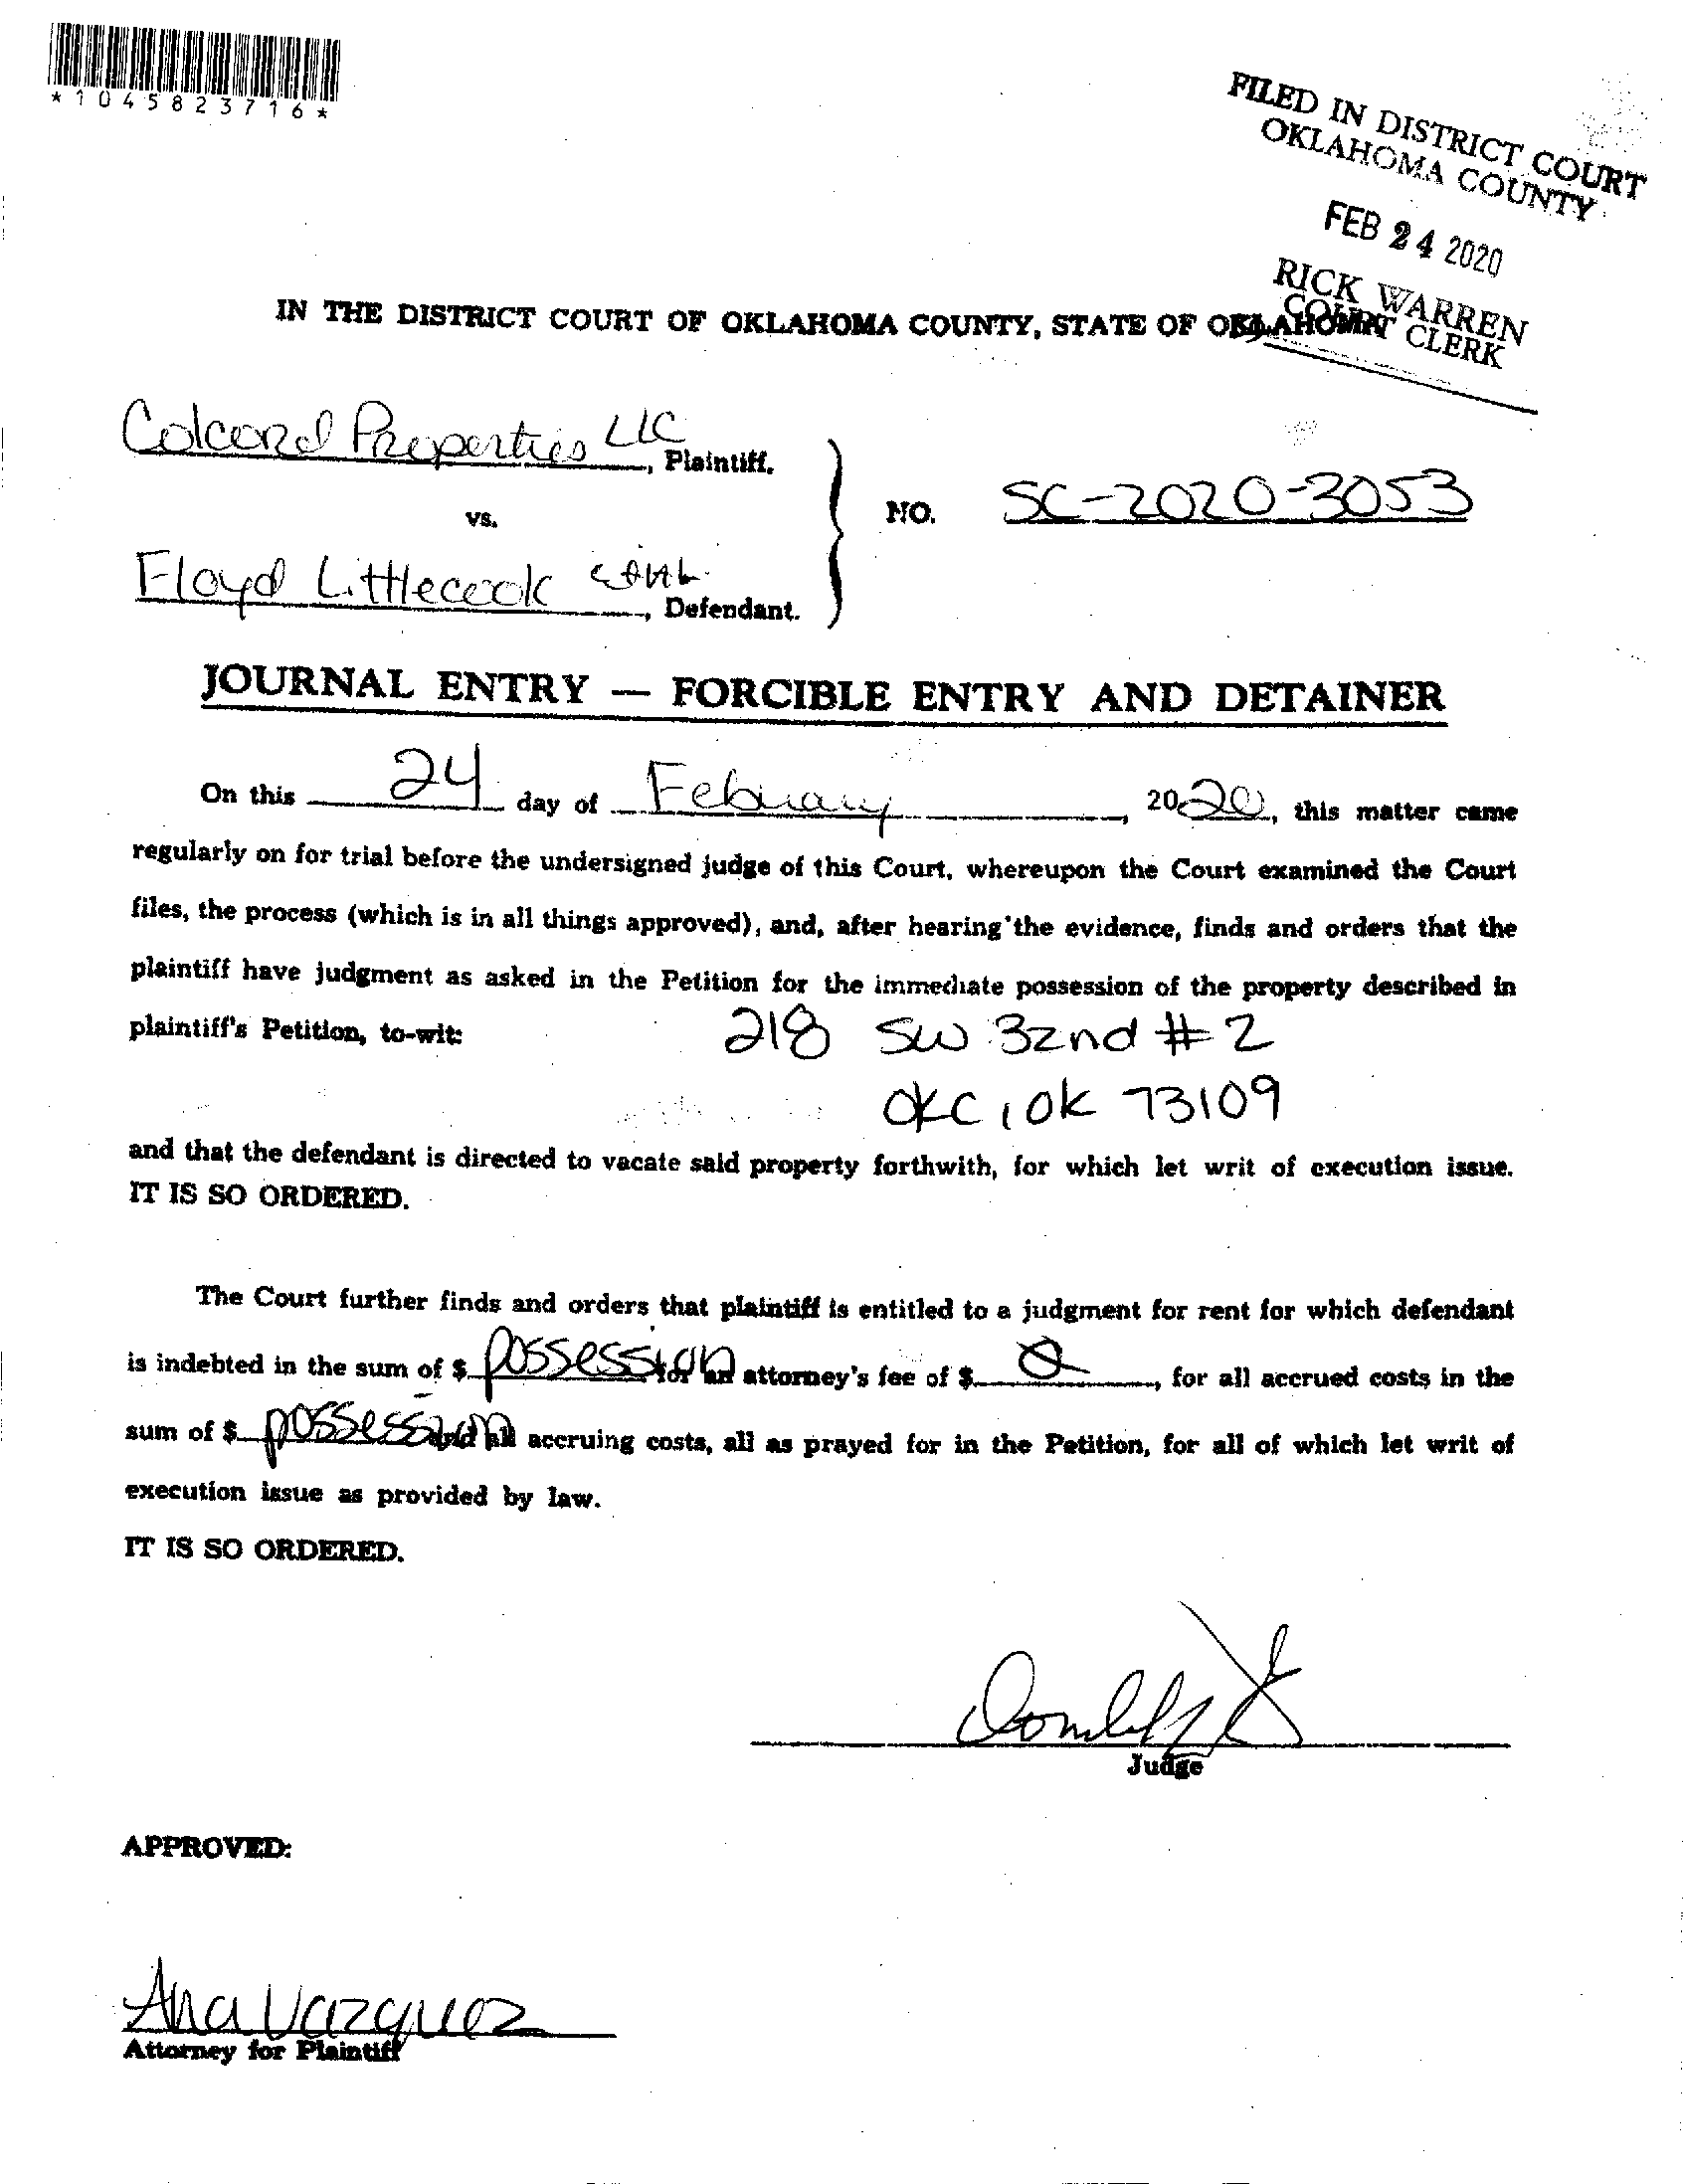 *1045823716*
FILED IN DISTRICT COURT
OKLAHOMA COUNTY
FEB 24 2020
RICK WARREN
COURT CLERK
IN THE DISTRICT COURT OF OKLAHOMA COUNTY, STATE OF OKLAHOMA
Colcord Properties LLC, Plaintiff,
vs.
NO. SC-2020-3053
Floyd Littlecook, Defendant.
JOURNAL ENTRY — FORCIBLE ENTRY AND DETAINER
On this 24 day of Febuary, 2020, this matter came
regularly on for trial before the undersigned judge of this Court, whereupon the Court examined the Court
files, the process (which is in all things approved), and, after hearing the evidence, finds and orders that the
plaintiff have judgment as asked in the Petition for the immediate possession of the property described in
plaintiff's Petition, to-wit: 218 SW 32nd #2
OKC, OK 73109
and that the defendant is directed to vacate said property forthwith, for which let writ of execution issue.
IT IS SO ORDERED.
The Court further finds and orders that plaintiff is entitled to a judgment for rent for which defendant
is indebted in the sum of $ possession for an attorney's fee of $ 0, for all accrued costs in the
sum of $ possession and all accruing costs, all as prayed for in the Petition, for all of which let writ of
execution issue as provided by law.
IT IS SO ORDERED.
Judge
APPROVED:
Ana Vazquez
Attorney for Plaintiff